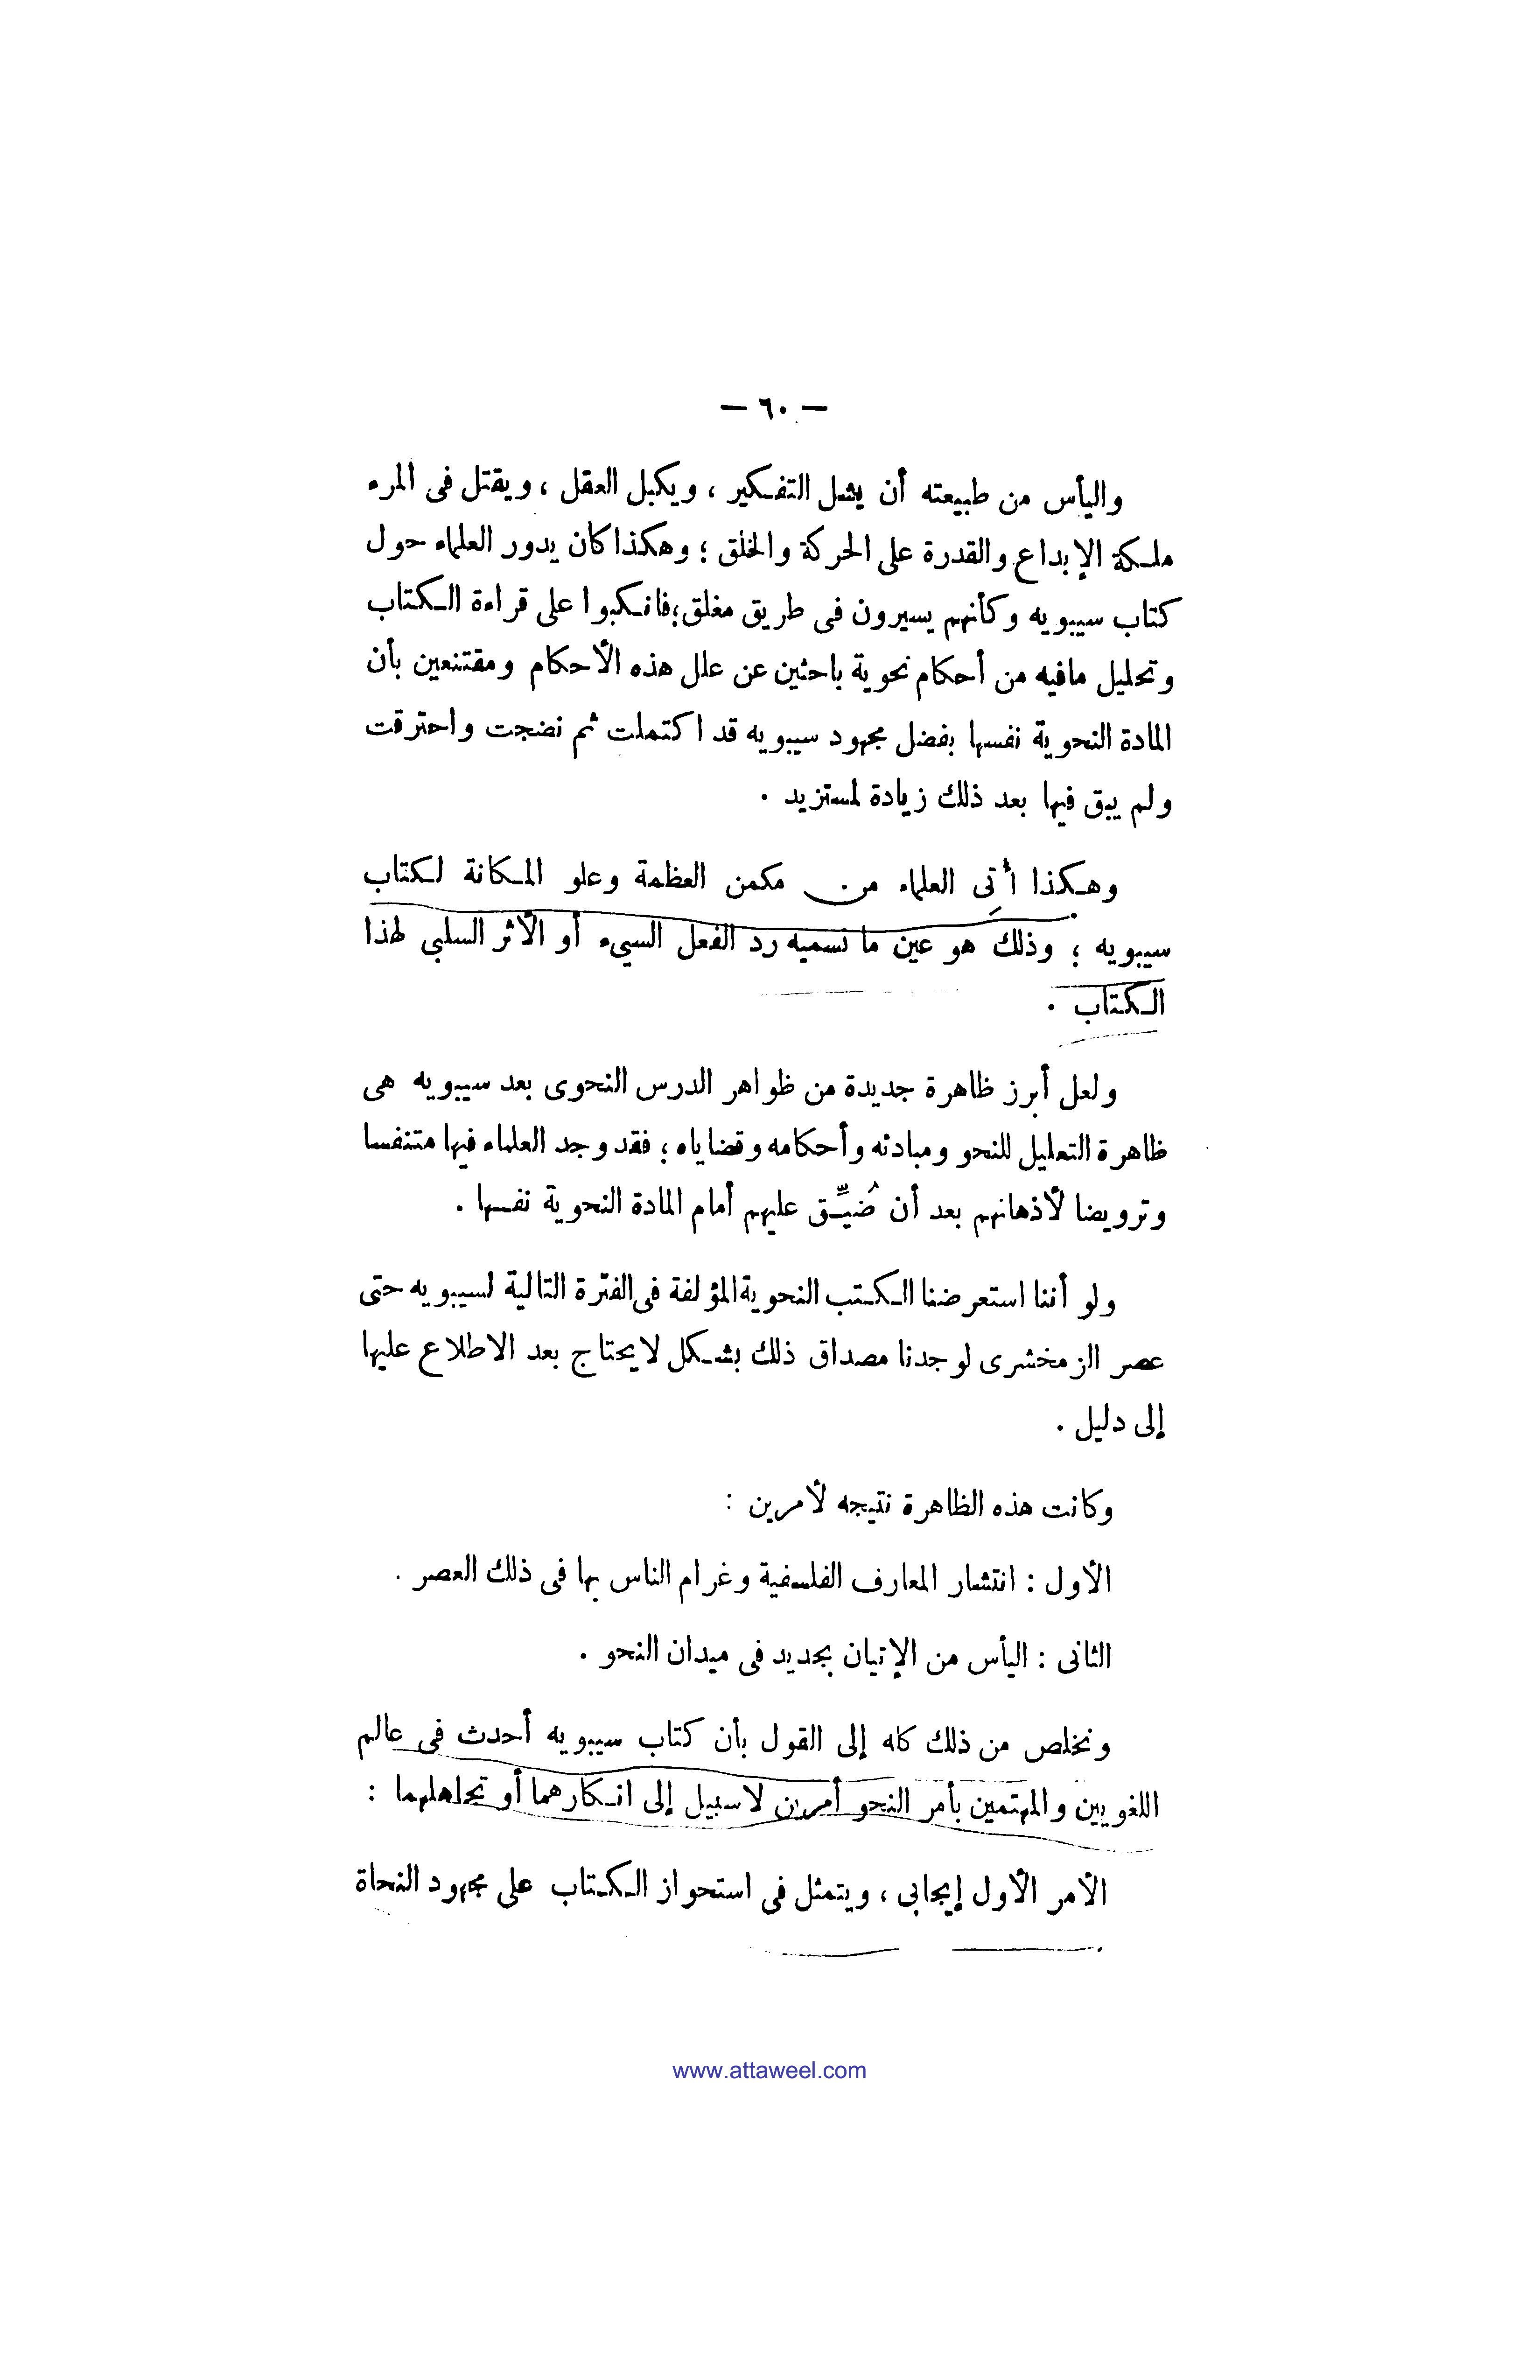 — ٦٠ —
واليأس من طبيعته أن يشل التفكير ، ويكبل العقل ، ويقتل فى المرء
ملكة الإبداع والقدرة على الحركة والخلق ؛ وهكذا كان يدور العلماء حول
كتاب سيبويه وكأنهم يسيرون فى طريق مغلق ؛ فانكبوا على قراءة الكتاب
وتحليل مافيه من أحكام نحوية باحثين عن علل هذه الأحكام ومقتنعين بأن
المادة النحوية نفسها بفضل مجهود سيبويه قد اكتملت ثم نضجت واحترقت
ولم يبق فيها بعد ذلك زيادة لمستزيد .
وهكذا أُتِى العلماء من مكمن العظمة وعلو المكانة لكتاب
سيبويه ؛ وذلك هو عين ما نسميه رد الفعل السيىء أو الأثر السلبى لهذا
الكتاب .
ولعل أبرز ظاهرة جديدة من ظواهر الدرس النحوى بعد سيبويه هى
ظاهرة التعليل للنحو ومبادئه وأحكامه وقضاياه ؛ فقد وجد العلماء فيها متنفسا
وترويضا لأذهانهم بعد أن ضُيِّق عليهم أمام المادة النحوية نفسها .
ولو أننا استعرضنا الكتب النحوية المؤلفة فى الفترة التالية لسيبويه حتى
عصر الزمخشرى لوجدنا مصداق ذلك بشكل لايحتاج بعد الاطلاع عليها
إلى دليل .
وكانت هذه الظاهرة نتيجه لأمرين :
الأول : انتشار المعارف الفلسفية وغرام الناس بها فى ذلك العصر .
الثانى : اليأس من الإتيان بجديد فى ميدان النحو .
ونخلص من ذلك كله إلى القول بأن كتاب سيبويه أحدث فى عالم
اللغويين والمهتمين بأمر النحو أمرين لاسبيل إلى انكارهما أو تجاهلهما :
الأمر الأول إيجابى ، ويتمثل فى استحواز الكتاب على مجهود النحاة
www.attaweel.com